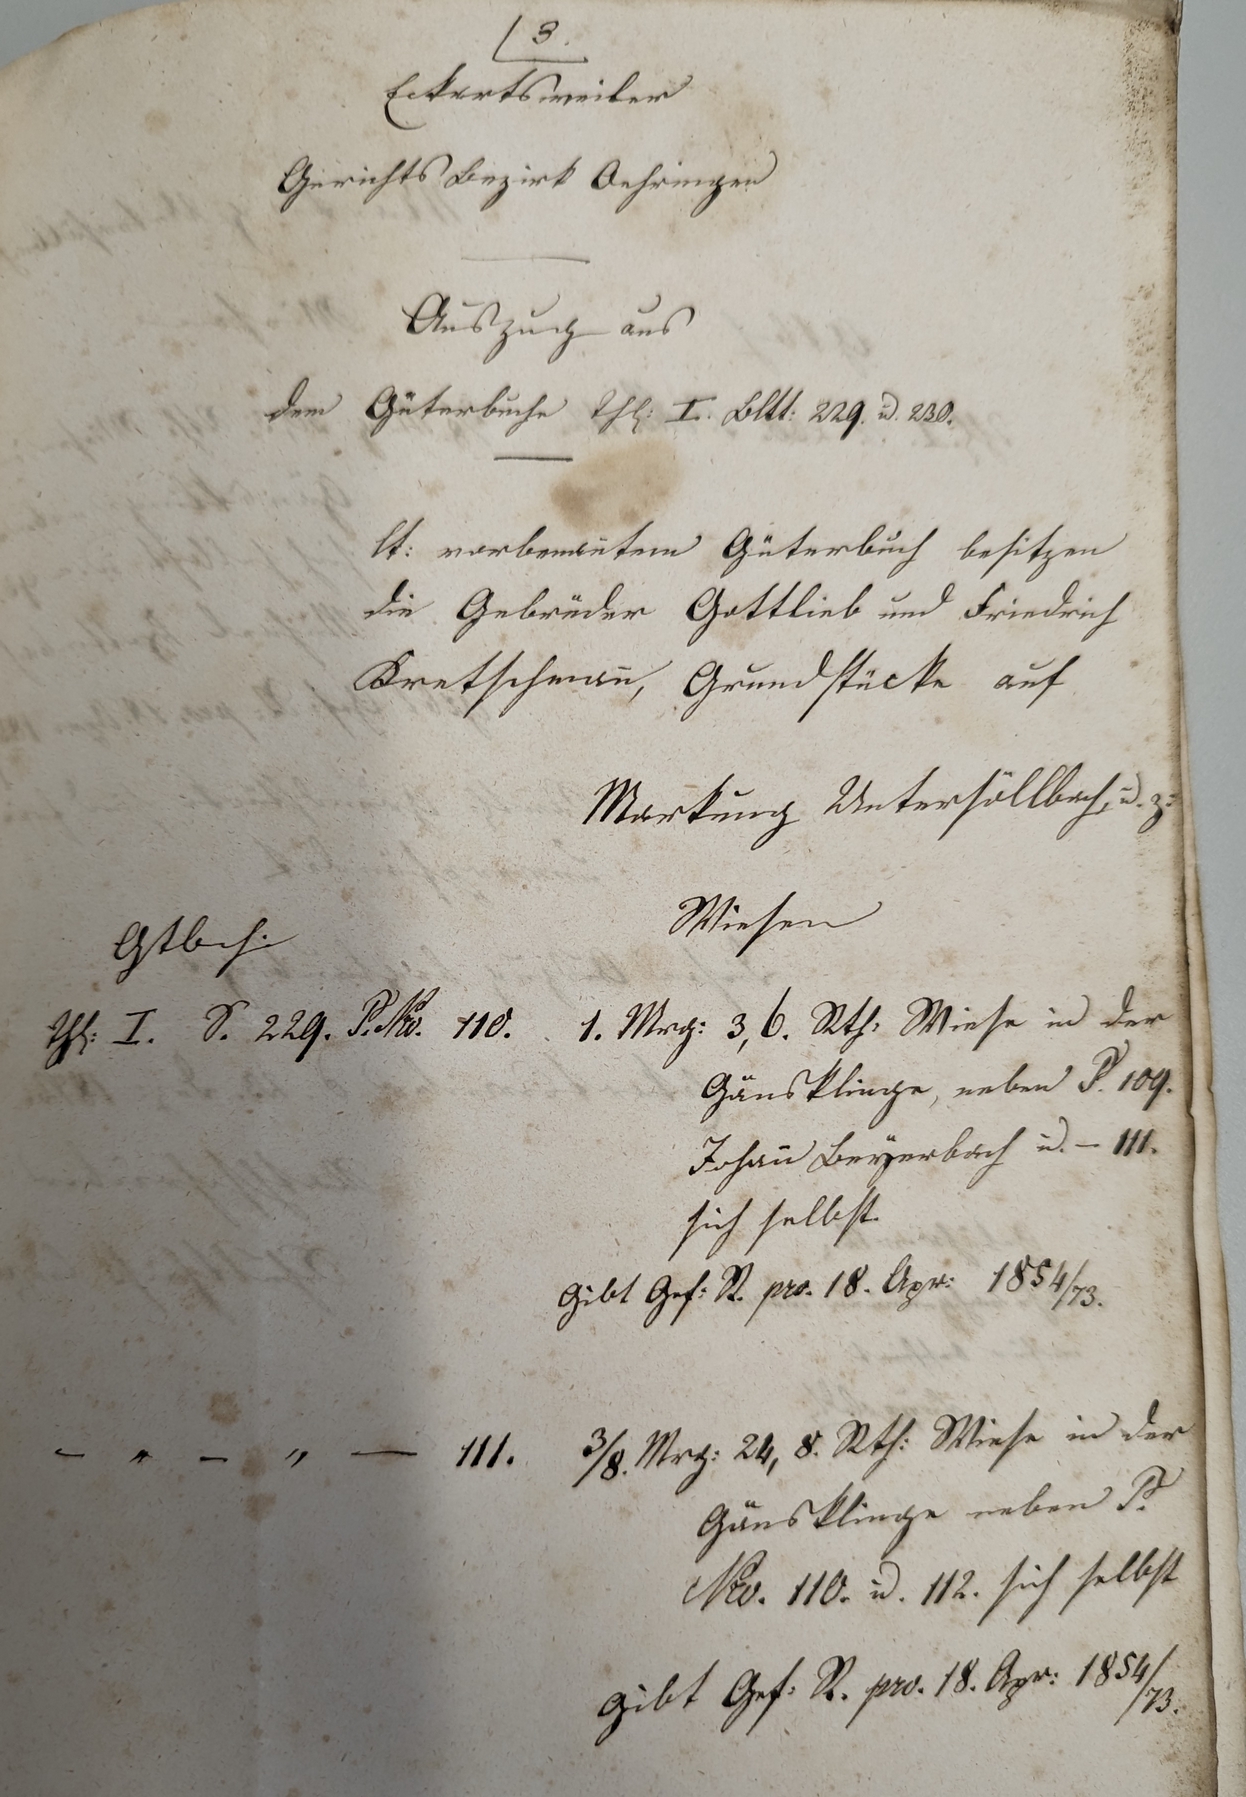 3.
Eckartsweiler
Gerichts Bezirk Oehringen
Auszug aus
dem Güterbuche Thl: I. Bltt: 229. u. 230.
lt: vorbenantem Güterbuch besitzen
die Gebrüder Gottlieb und Friedrich
Kretschman, Grundstücke auf
Markung Untersöllbach, u. z:
Wiesen
Gtbch:
Thl: I. S. 229. P. No. 110. 1. Mrg: 3,6. Rth: Wiese in der
Gänsklinge, neben P. 109.
Johan Beyerbach u. – 111.
sich selbst.
Gibt Gef: R. pro. 18. Apr: 1854/73.
– " – " – 111. 3/8. Mrg: 24,8. Rth: Wiese in der
Gänsklinge neben P.
No. 110. u. 112. sich selbst
Gibt Gef: R. pro. 18. Apr: 1854/73.